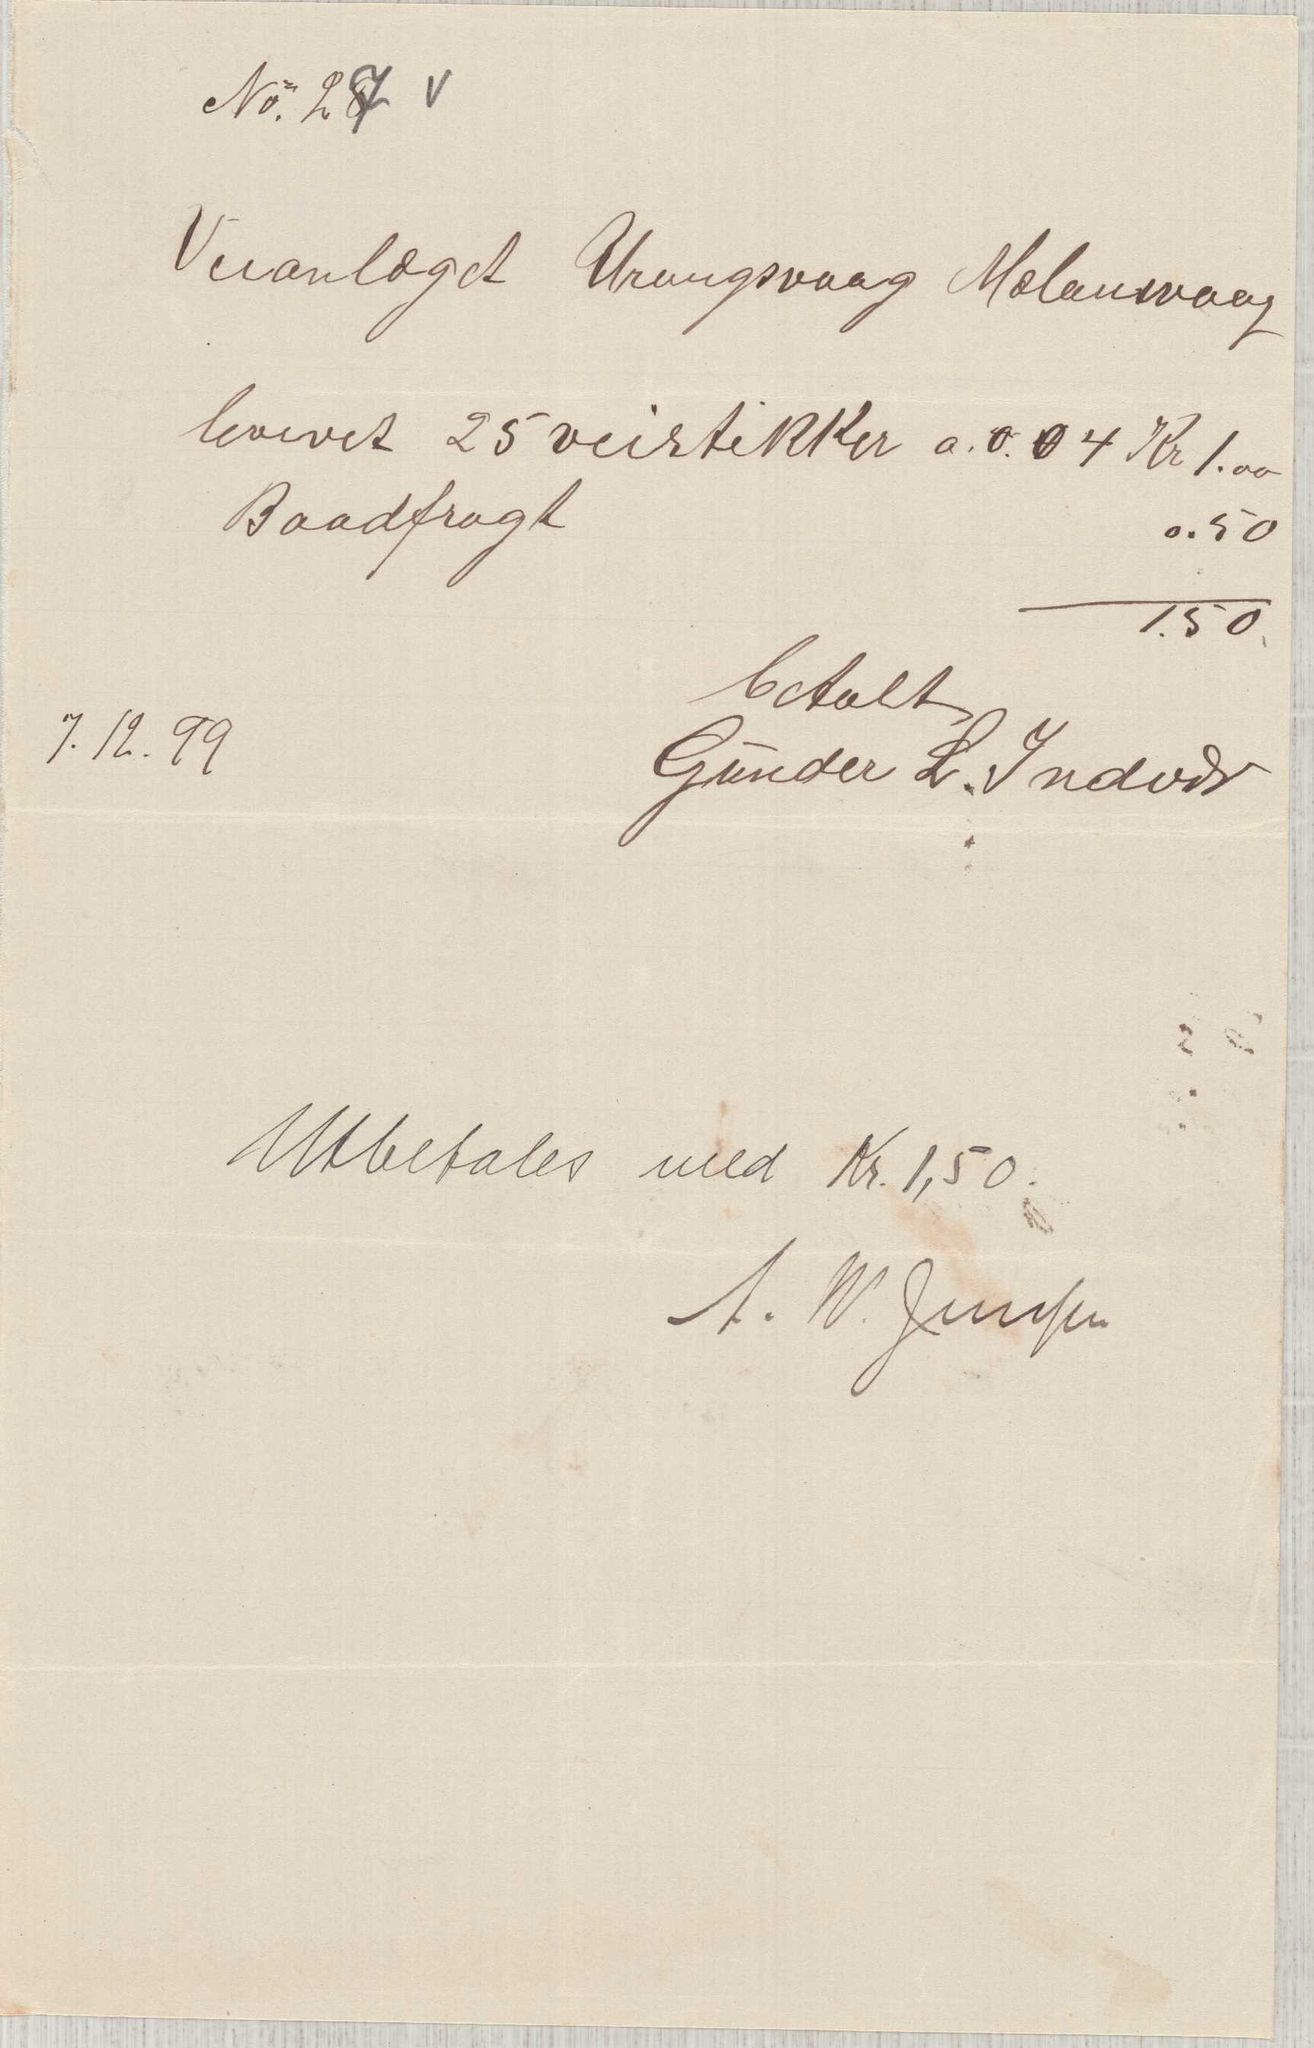 No. 27 v
Veianlæget Urangsvaag Mælansvaag
levert 25 veistikker a. 0.04 Kr 1.00
Baadfragt 0.50
1.50
betalt
7.12.99
Gunder L. Indvær
Utbetales med Kr. 1,50.
A. W. Jensen